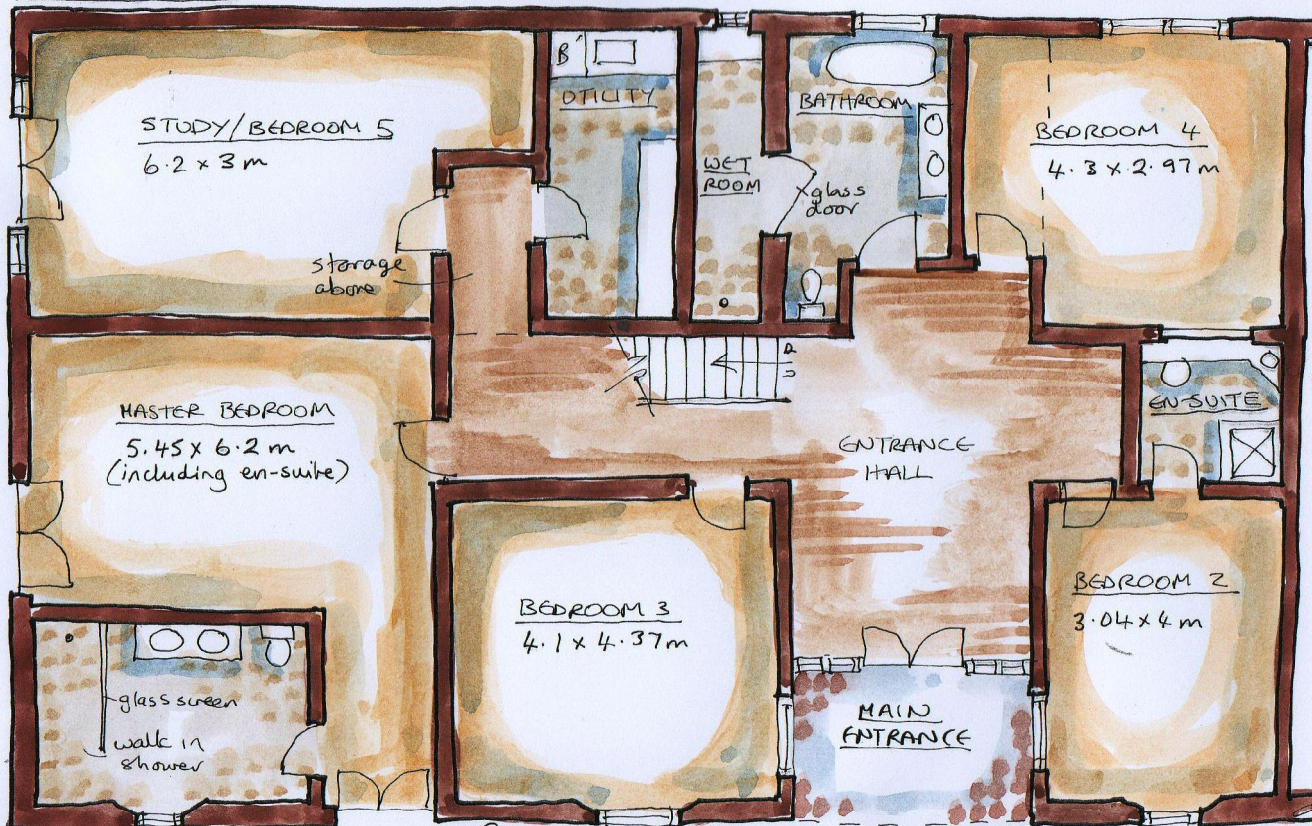 STUDY/BEDROOM 5
6.2 x 3 m
B
UTILITY
WET
ROOM
BATHROOM
glass
door
BEDROOM 4
4.3 x 2.97m
storage
above
MASTER BEDROOM
5.45 x 6.2 m
(including en-suite)
ENTRANCE
HALL
EN-SUITE
BEDROOM 3
4.1 x 4.37m
BEDROOM 2
3.04 x 4 m
glass screen
walk in
shower
MAIN
ENTRANCE